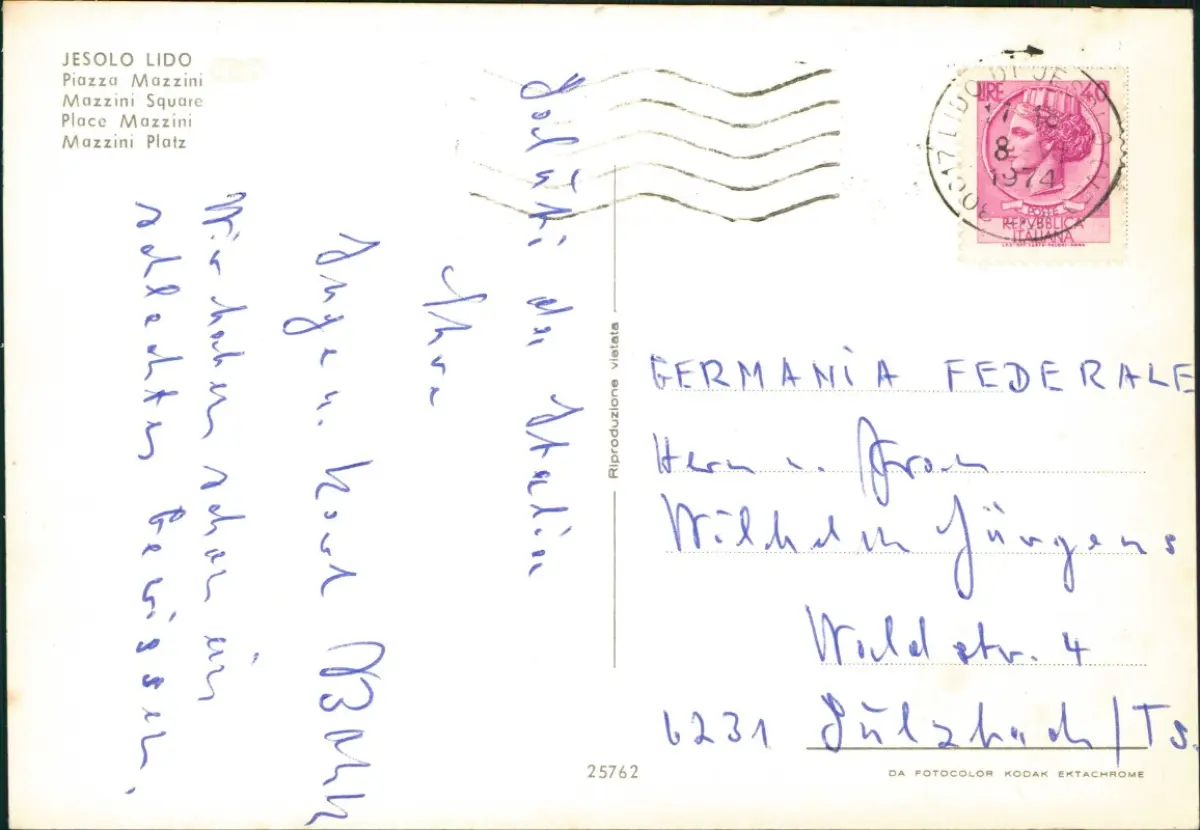 JESOLO LIDO
Piazza Mazzini
Mazzini Square
Place Mazzini
Mazzini Platz
Saluti da Italia
Ihre
Inge u. Horst
Wir haben schon ein
schlechtes Gewissen.
Riproduzione vietata
25762
LIRE 40
30017 LIDO DI JESOLO (VE)
8
1974
POSTE
REPVBBLICA
ITALIANA
GERMANiA FEDERALE
Herrn u. Frau
Wilhelm Jürgens
Waldstr. 4
6231 Sulzbach/Ts.
DA FOTOCOLOR KODAK EKTACHROME